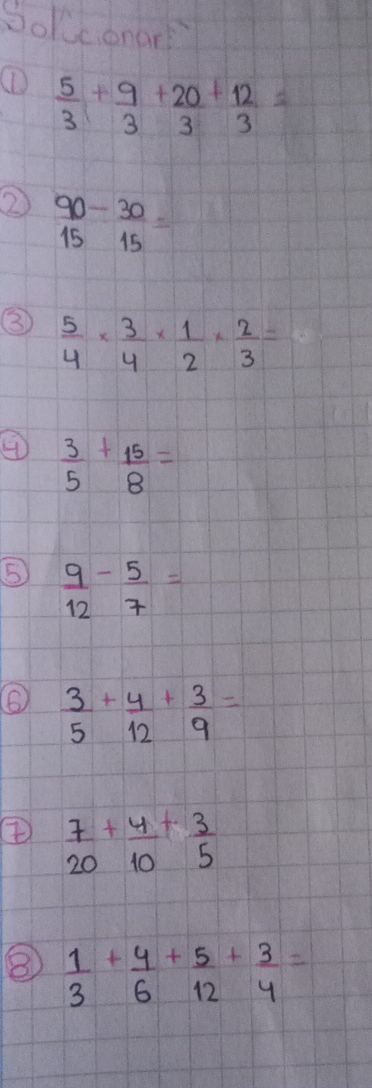 Solucionar:
① 5/3 + 9/3 + 20/3 + 12/3 =
② 90/15 - 30/15 =
③ 5/4 × 3/4 × 1/2 × 2/3 =
④ 3/5 + 15/8 =
⑤ 9/12 - 5/7 =
⑥ 3/5 + 4/12 + 3/9 =
⑦ 7/20 + 4/10 + 3/5
⑧ 1/3 + 4/6 + 5/12 + 3/4 =